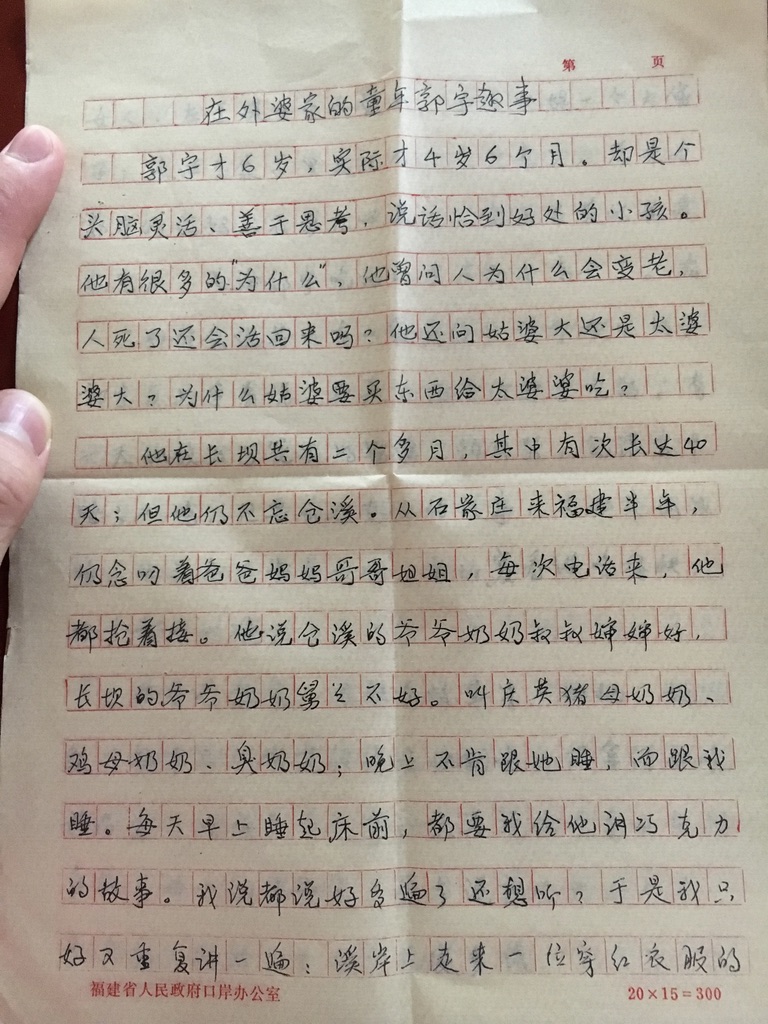 第 页
在外婆家的童年郭宇趣事
郭宇才6岁，实际才4岁6个月。却是个
头脑灵活、善于思考，说话恰到好处的小孩。
他有很多的"为什么"，他曾问人为什么会变老，
人死了还会活回来吗？他还问姑婆大还是太婆
婆大？为什么姑婆要买东西给太婆婆吃？
他在长坝共有二个多月，其中有次长达40
天；但他仍不忘仓溪。从石家庄来福建半年，
仍念叨着爸爸妈妈哥哥姐姐，每次电话来，他
都抢着接。他说仓溪的爷爷奶奶叔叔婶婶好，
长坝的爷爷奶奶舅舅不好。叫庆英猪母奶奶、
鸡母奶奶、臭奶奶；晚上不肯跟她睡，而跟我
睡。每天早上睡起床前，都要我给他讲巧克力
的故事。我说都说好多遍了还想听？于是我只
好又重复讲一遍：溪岸上走来一位穿红衣服的
福建省人民政府口岸办公室 20×15=300